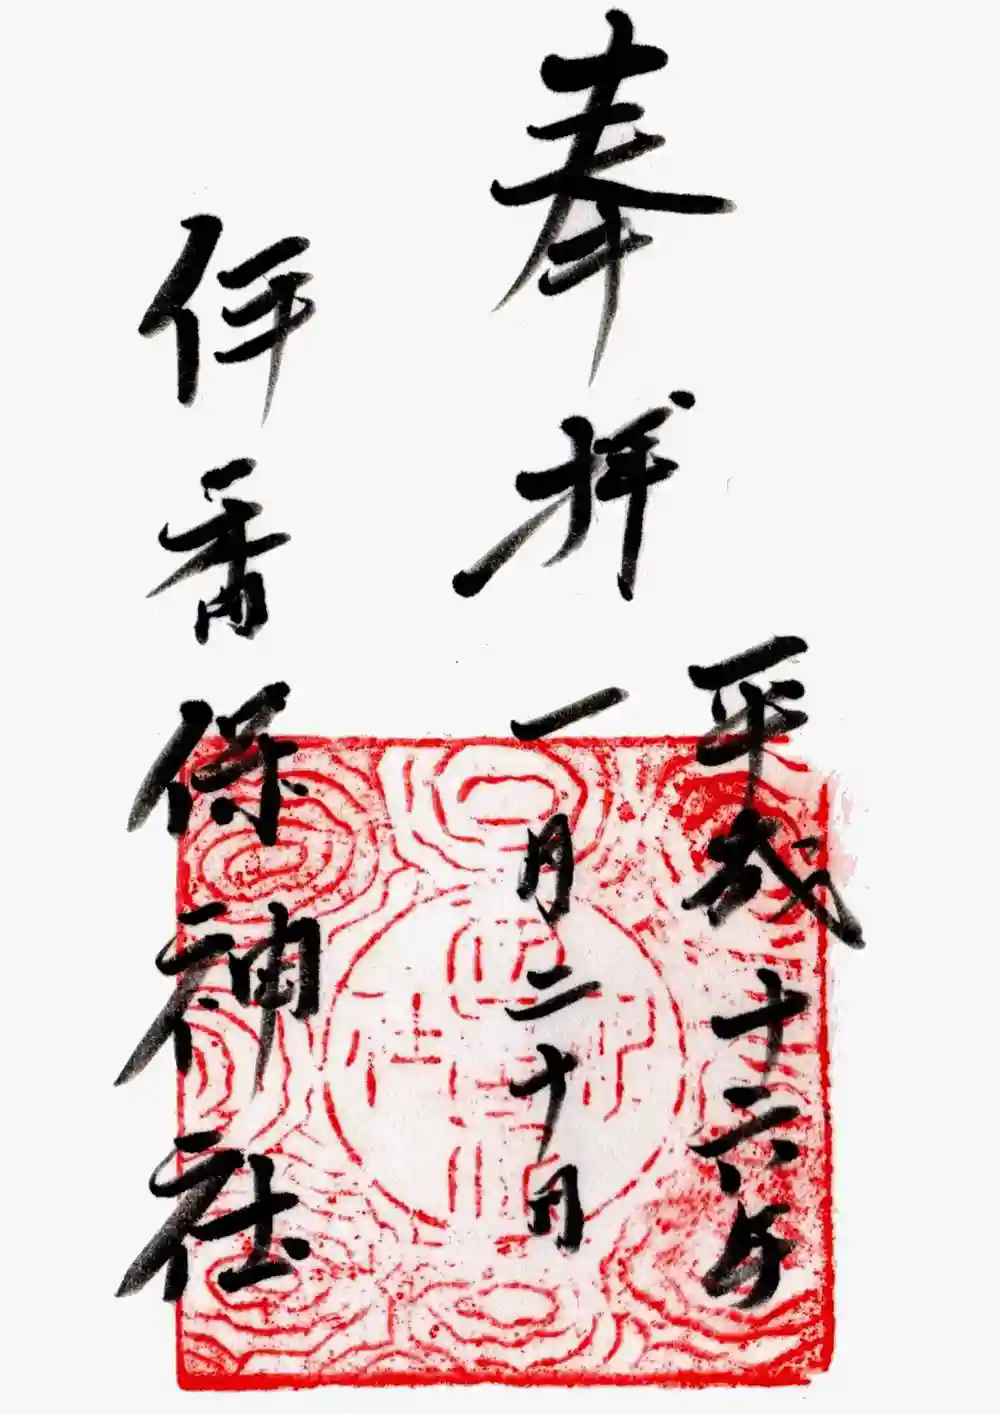 奉拝
平成十六年
一月二十日
伊香保神社